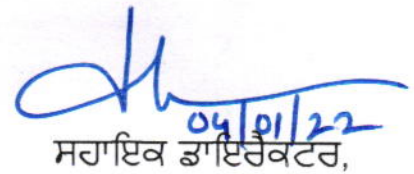 04/01/22
ਸਹਾਇਕ ਡਾਇਰੈਕਟਰ,